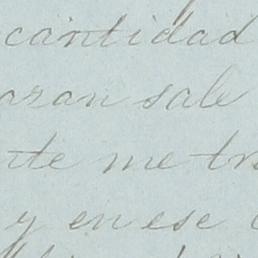 cantidad
sale
te me tra
y en ese